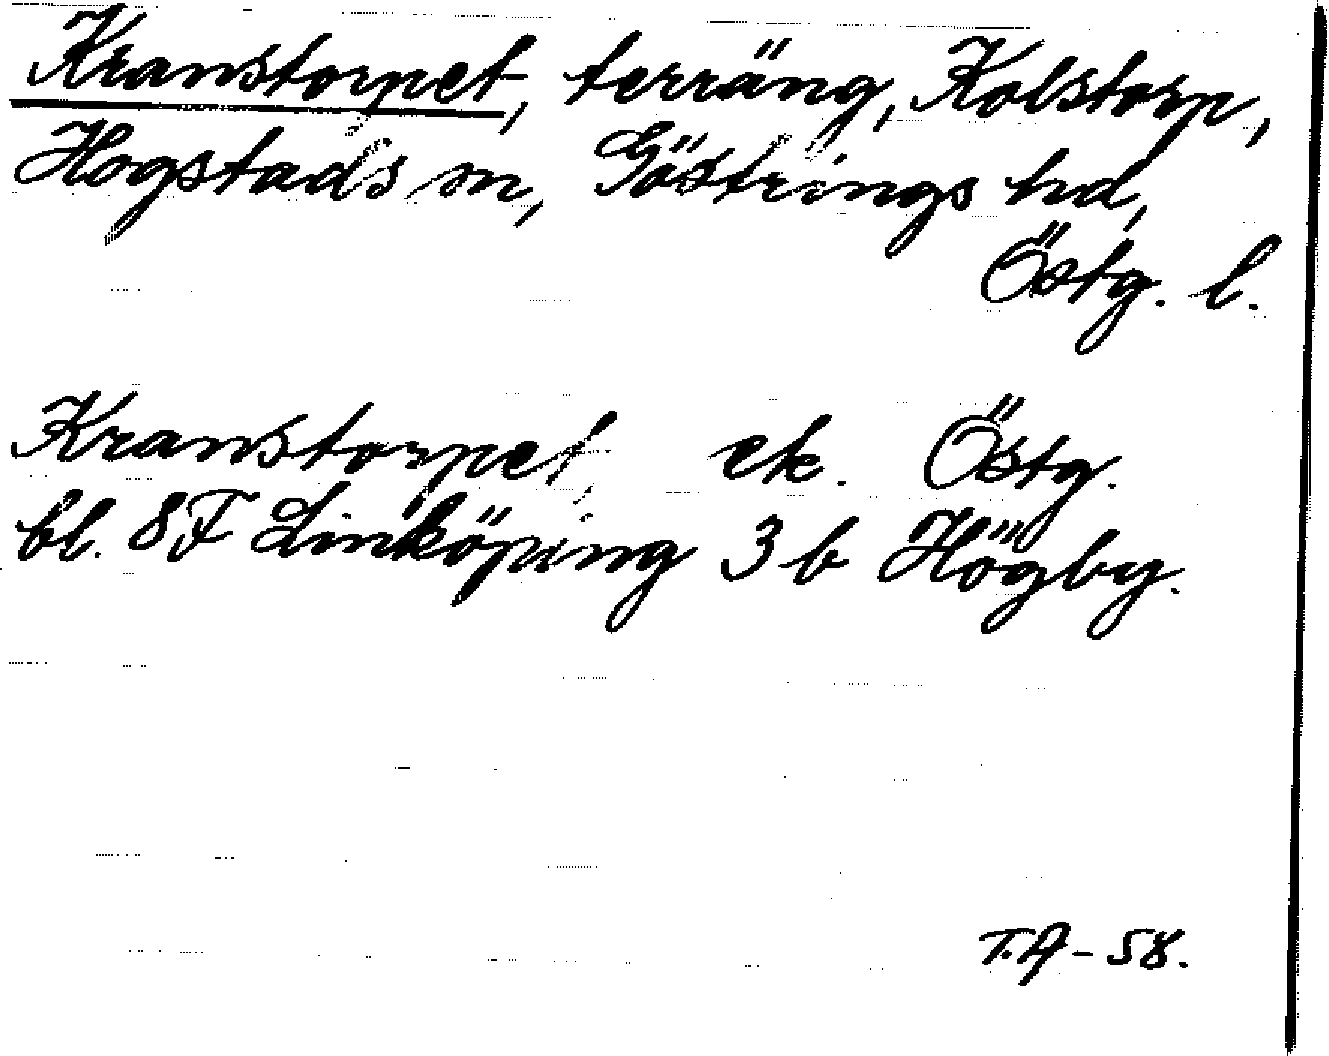 Kranstorpet, terräng, Kolstorp,
Hogstads sn, Göstrings hd,
Östg. l.
Kranstorpet ek. Östg.
bl. 8F Linköping 3 b Högby.
T.A-58.